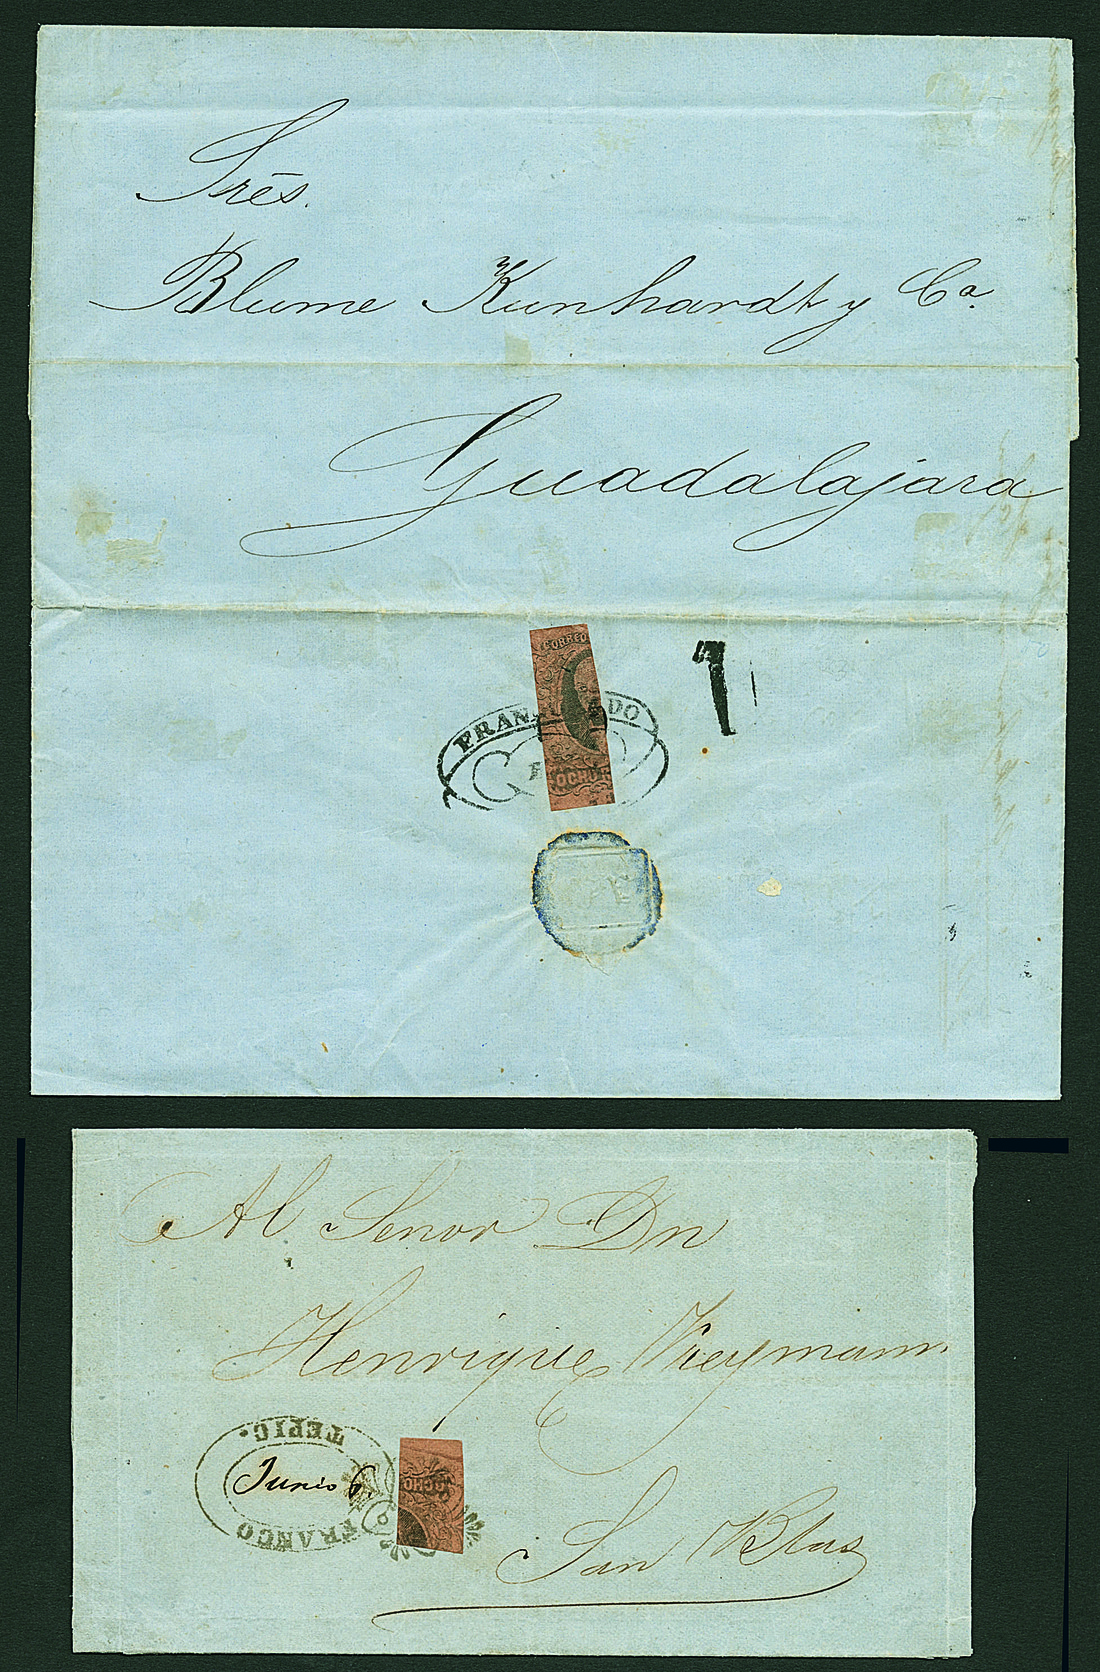 Srēs.
Blume Kunhardt y Ca.
Guadalajara
CORREO
FRAN DO
OCHO
1
Al Senor Dn
Henrique Weymann
San Blas
TEPIC.
Junio 6.
FRANCO
OCHO